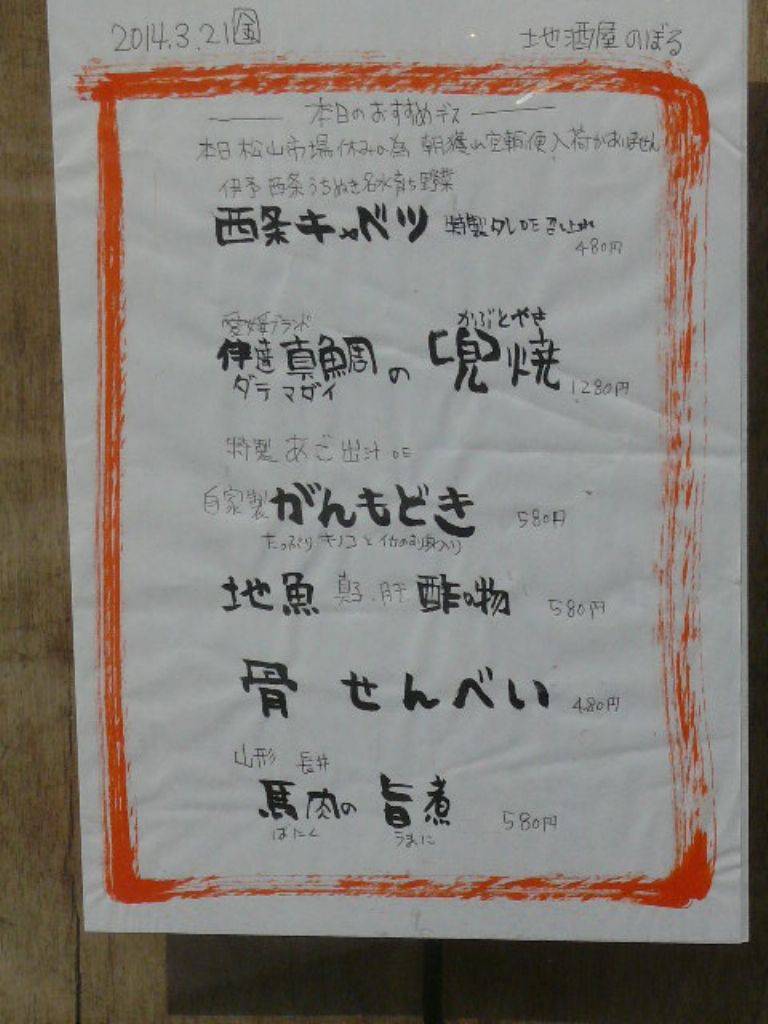 2014.3.21 金 地酒屋のぼる
本日のおすすめデス
本日松山市場休みの為 朝獲れ空輸便入荷がありません
伊予西条うちぬき名水育ち野菜
西条キャベツ 特製タレDE召し上れ
480円
愛媛ブランド かぶとやき
伊達真鯛の「兜」焼 1280円
ダテマダイ
特製あご出汁DE
自家製がんもどき 580円
たっぷりキノコと
地魚 真子.肝 酢の物 580円
骨せんべい 480円
山形 長井
馬肉の旨煮 580円
ばにく うまに